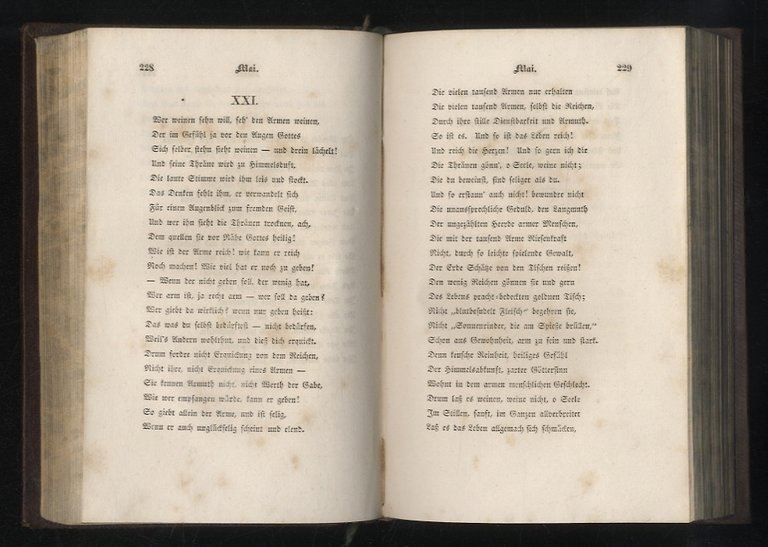 228
Mai.
XXI.
Wer weinen sehn will, seh' den Armen weinen,
Der im Gefühl ja vor den Augen Gottes
Sich selber stehn sieht weinen — und drein lächelt!
Und seine Thräne wird zu Himmelsduft,
Die laute Stimme wird ihm leis und stockt.
Das Denken fehlt ihm, er verwandelt sich
Für einen Augenblick zum fremden Geist,
Und wer ihn sieht die Thränen trocknen, ach,
Dem quellen sie vor Nähe Gottes heilig!
Wie ist der Arme reich! wie kann er reich
Noch machen! Wie viel hat er noch zu geben!
— Wenn der nicht geben soll, der wenig hat,
Wer arm ist, ja recht arm — wer soll da geben?
Wer giebt da wirklich? wenn nur geben heißt:
Das was du selbst bedürftest — nicht bedürfen,
Weil's Andern wohlthut, und dieß dich erquickt.
Drum fordre nicht Erquickung von dem Reichen,
Nicht ihre, nicht Erquickung eines Armen —
Sie kennen Armuth nicht, nicht Werth der Gabe,
Wie wer empfangen würde, kann er geben!
So giebt allein der Arme, und ist selig,
Wenn er auch unglückselig scheint und elend.
Mai.
229
Die vielen tausend Armen nur erhalten
Die vielen tausend Armen, selbst die Reichen,
Durch ihre stille Dienstbarkeit und Armuth.
So ist es. Und so ist das Leben reich!
Und reich die Herzen! Und so gern ich dir
Die Thränen gönn', o Seele, weine nicht;
Die du beweinst, sind seliger als du.
Und so erstaun' auch nicht! bewundre nicht
Die unaussprechliche Geduld, den Langmuth
Der ungezählten Heerde armer Menschen,
Die mit der tausend Arme Riesenkraft
Nicht, durch so leichte spielende Gewalt,
Der Erde Schätze von den Tischen reißen!
Den wenig Reichen gönnen sie und gern
Des Lebens pracht-bedeckten goldnen Tisch;
Nicht „blutbesudelt Fleisch“ begehren sie,
Nicht „Sonnenrinder, die am Spieße brüllen,“
Schon aus Gewohnheit, arm zu sein und stark.
Denn keusche Reinheit, heiliges Gefühl
Der Himmelsabkunft, zarter Göttersinn
Wohnt in dem armen menschlichen Geschlecht.
Drum laß es weinen, weine nicht, o Seele
Im Stillen, sanft, im Ganzen allverbreitet
Laß es das Leben allgemach sich schmücken,